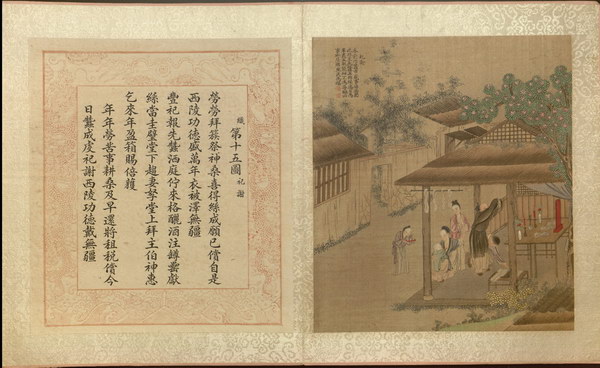 織 第十五圖 祀謝
勞勞拜簇祭神桑喜得絲成願已償自是
西陵功德盛萬年衣被澤無疆
豐祀報先蠶洒庭佇來格釃酒注罇罍獻
絲當圭璧堂下趨妻孥堂上拜主伯神惠
乞來年盈箱賜倍
年年勞苦事耕桑及早還將租稅償今
日蠶成虔祀謝西陵功德戴無疆